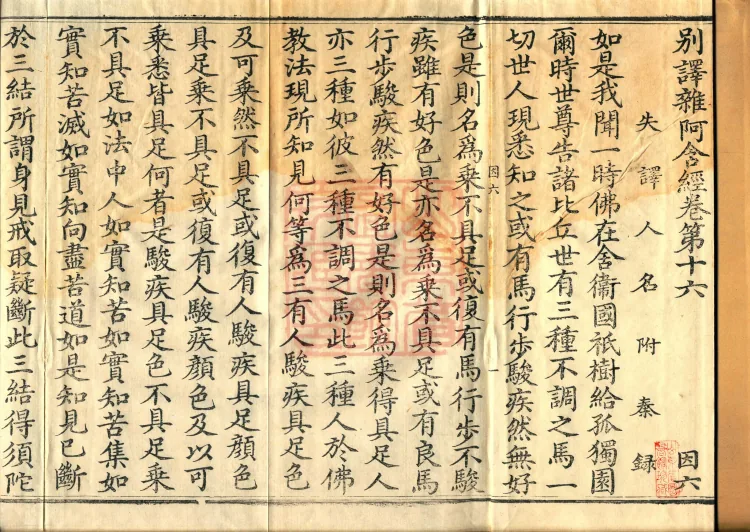 別譯雜阿含經卷第十六 因六
失譯人名附秦錄
如是我聞一時佛在舍衞國祇樹給孤獨園
爾時世尊告諸比丘世有三種不調之馬一
切世人現悉知之或有馬行步駿疾然無好
因六 一
色是則名爲乘不具足或復有馬行步不駿
疾雖有好色是亦名爲乘不具足或有良馬
行步駿疾然有好色是則名爲乘得具足人
亦三種如彼三種不調之馬此三種人於佛
教法現所知見何等爲三有人駿疾具足色
及可乘然不具足或復有人駿疾具足顔色
具足乘不具足或復有人駿疾顔色及以可
乘悉皆具足何者是駿疾具足色不具足乘
不具足如法中人如實知苦如實知苦集如
實知苦滅如實知向盡苦道如是知見已斷
於三結所謂身見戒取疑斷此三結得須陀